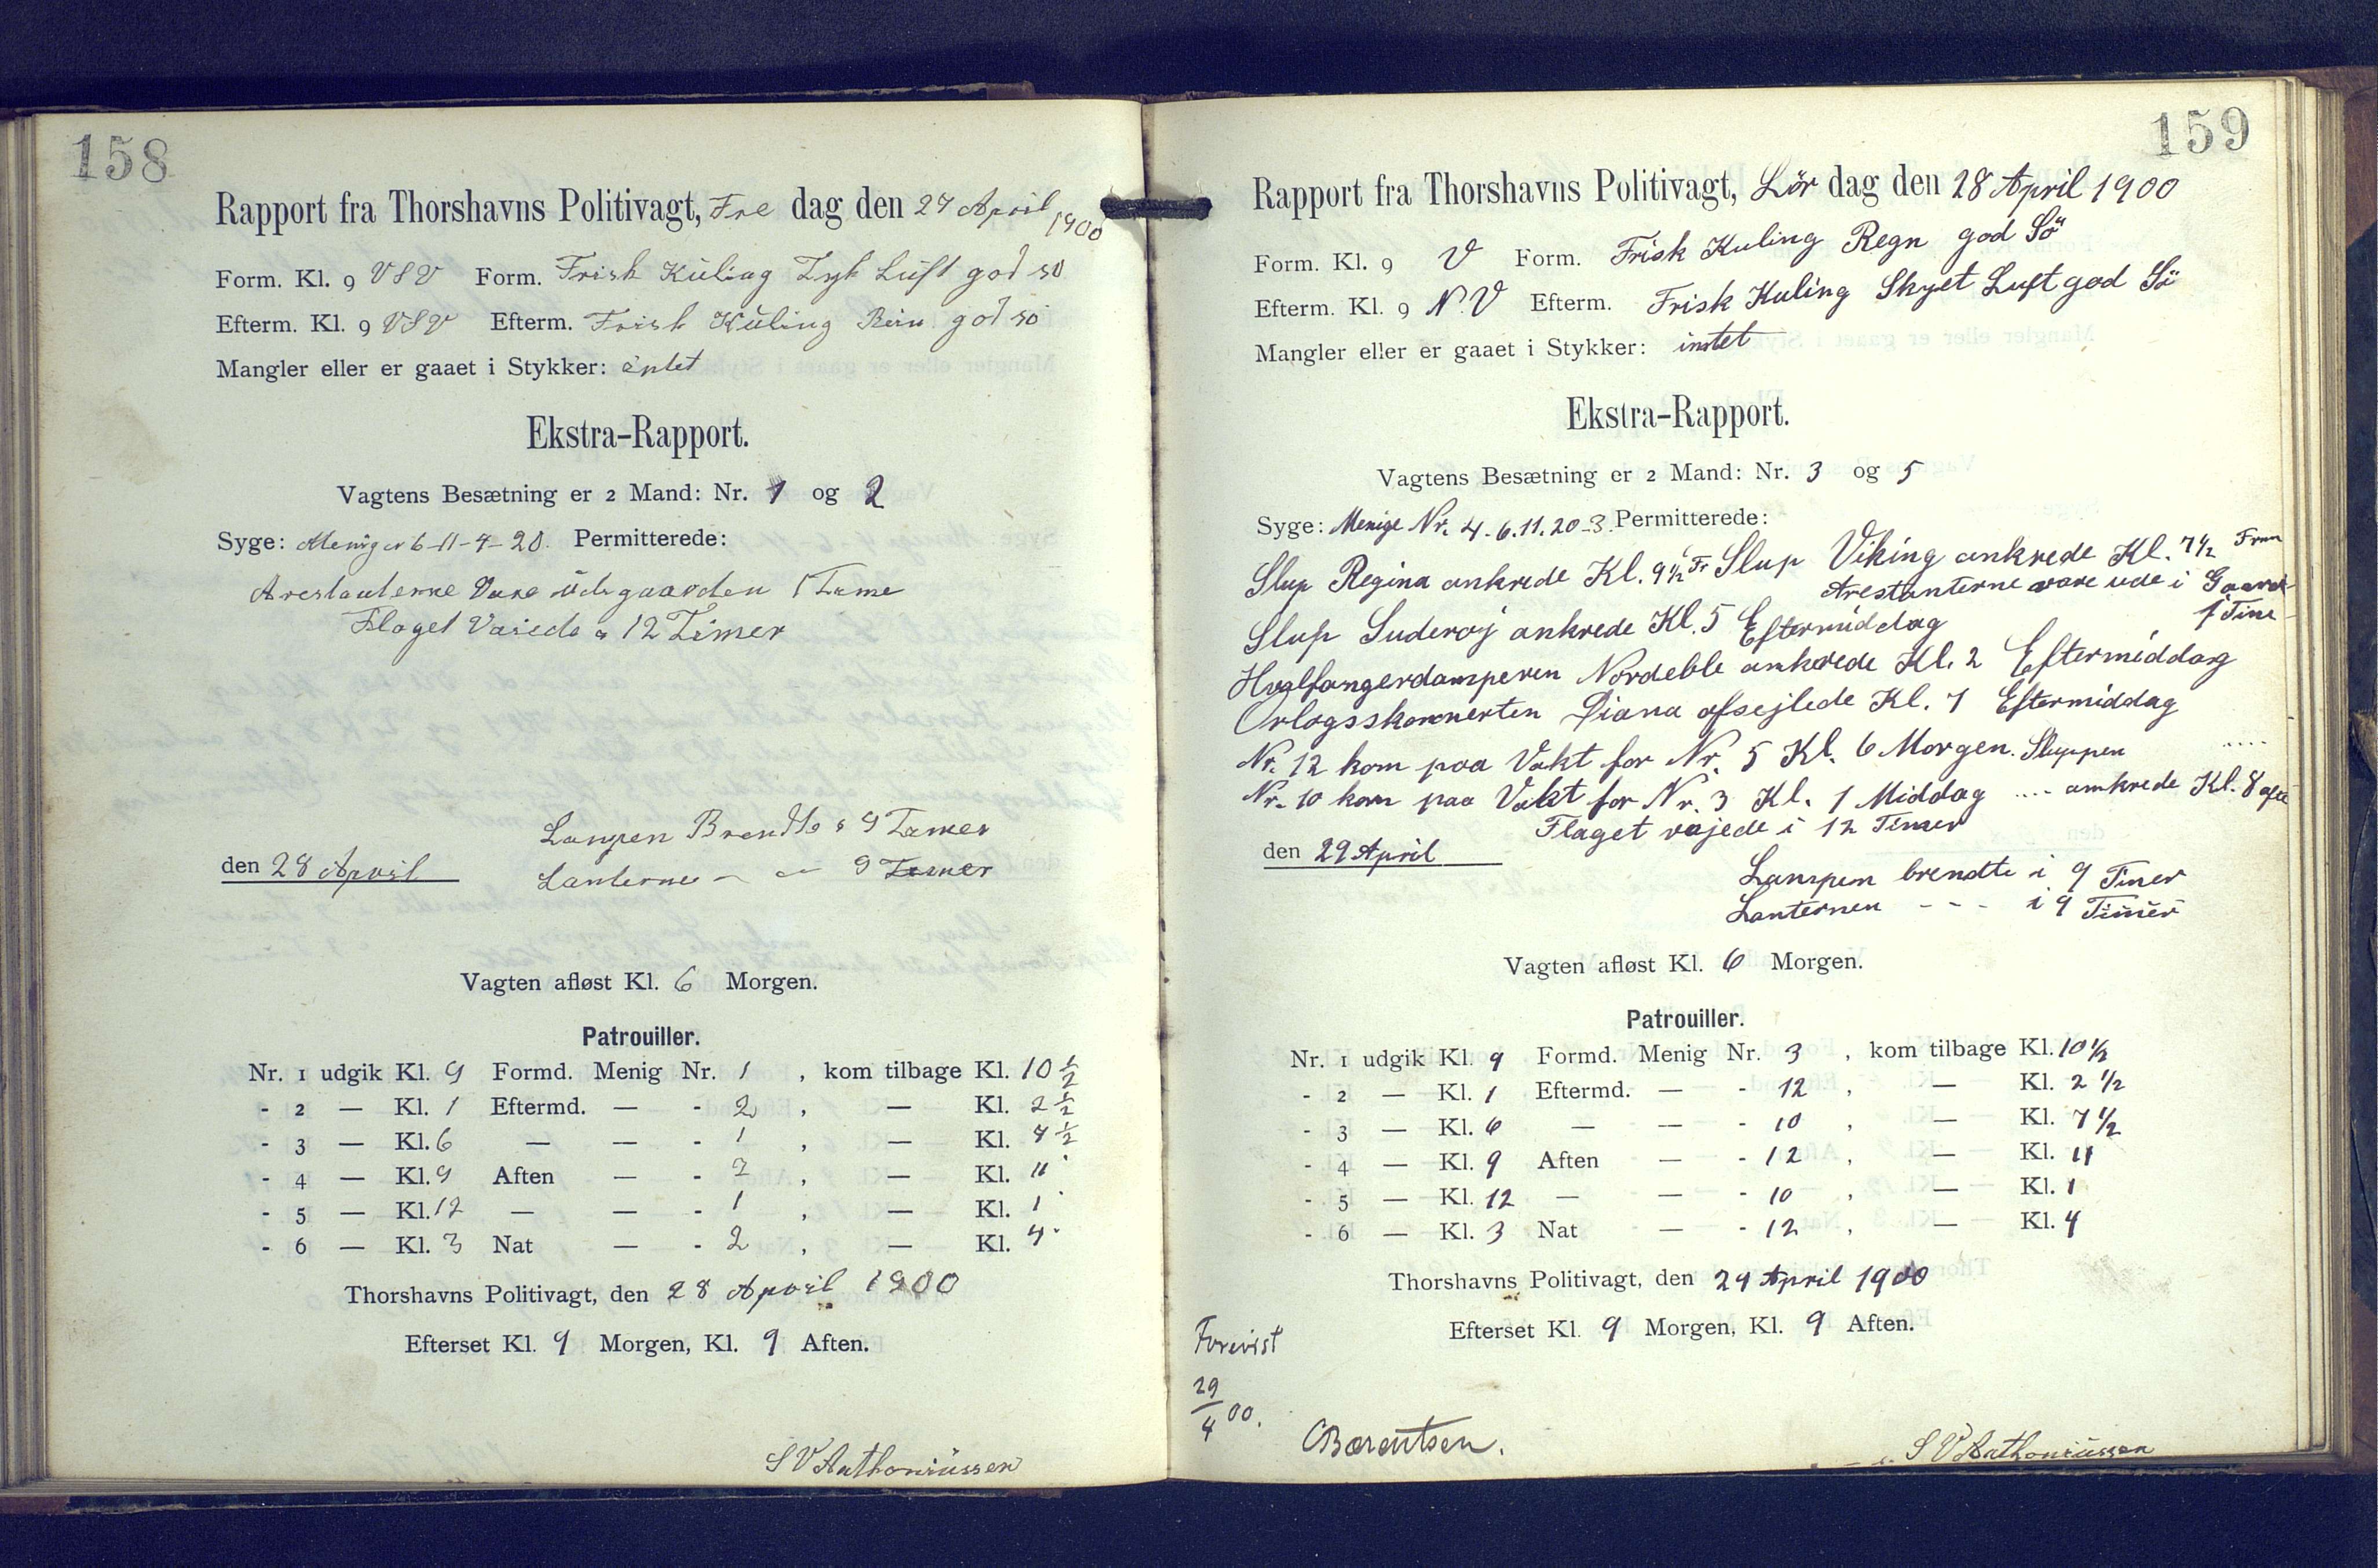 158
Rapport fra Thorshavns Politivagt, Fre dag den 27 April 1900
Form. Kl. 9 VSV Form. Frisk Kuling Tyk Luft god so
Efterm. Kl. 9 VSV Efterm. Frisk Kuling Rein god so
Mangler eller er gaaet i Stykker: intet
Ekstra-Rapport.
Vagtens Besætning er 2 Mand: Nr. 1 og 2
Syge: Menig nr 6-11-4-20. Permitterede:
Arestanterne Vare ude gaarden 1 Time
Flaget Vaiede i 12 Timer
Lampen Brendte i 9 Timer
den 28 April
Lanterne — — 9 Timer
Vagten afløst Kl. 6 Morgen.
Patrouiller.
Nr. 1 udgik Kl. 9 Formd. Menig Nr. 1 , kom tilbage Kl. 10 ½
- 2 — Kl. 1 Eftermd. — - 2 , — Kl. 2 ½
- 3 — Kl. 6 — — - 1 , — Kl. 7 ½
- 4 — Kl. 9 Aften — - 2 , — Kl. 11
- 5 — Kl. 12 — — - 1 , — Kl. 1
- 6 — Kl. 3 Nat — - 2 , — Kl. 4
Thorshavns Politivagt, den 28 April 1900
Efterset Kl. 9 Morgen, Kl. 9 Aften.
S V Anthoniussen
159
Rapport fra Thorshavns Politivagt, Lör dag den 28 April 1900
Form. Kl. 9 V Form. Frisk Kuling Regn god Sö
Efterm. Kl. 9 N.V Efterm. Frisk Kuling Skyet Luft god Sö
Mangler eller er gaaet i Stykker: intet
Ekstra-Rapport.
Vagtens Besætning er 2 Mand: Nr. 3 og 5
Syge: Menige Nr. 4-6.11.20-3. Permitterede:
Slup Regina ankrede Kl. 9½ Fr Slup Viking ankrede Kl. 7½ Frm
Arestanterne vare ude i Gaard
1 Time
Slup Suderoy ankrede Kl. 5 Eftermiddag
Hvalfangerdamperen Nordeble ankrede Kl. 2 Eftermiddag
Orlogsskonnerten Diana afsejlede Kl. 7 Eftermiddag
Nr. 12 kom paa Vakt for Nr. 5 Kl. 6 Morgen. Sluppen ....
Nr. 10 kom paa Vakt for Nr. 3 Kl. 1 Middag .... ankrede Kl. 8 aft
Flaget vajede i 12 Timer
den 29 April
Lampen brendte i 9 Timer
Lanternen - - - i 9 Timer
Vagten afløst Kl. 6 Morgen.
Patrouiller.
Nr. 1 udgik Kl. 9 Formd. Menig Nr. 3 , kom tilbage Kl. 10 ½
- 2 — Kl. 1 Eftermd. — - 12 , — Kl. 2 ½
- 3 — Kl. 6 — — - 10 , — Kl. 7 ½
- 4 — Kl. 9 Aften — - 12 , — Kl. 11
- 5 — Kl. 12 — — - 10 , — Kl. 1
- 6 — Kl. 3 Nat — - 12 , — Kl. 4
Thorshavns Politivagt, den 29 April 1900
Efterset Kl. 9 Morgen, Kl. 9 Aften.
Forevist
29/4 00.
CBærentsen.
S V Anthoniussen